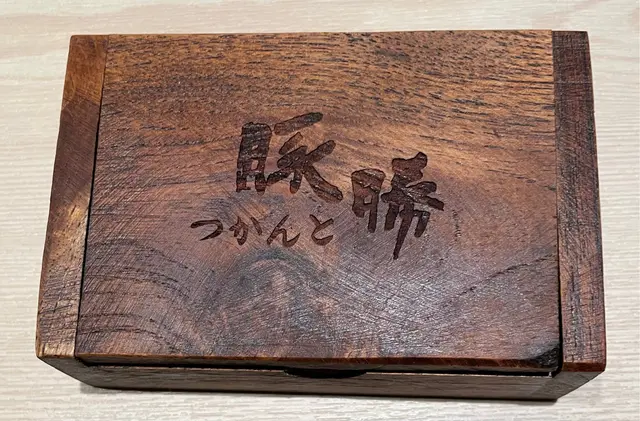 豚勝
つかんと